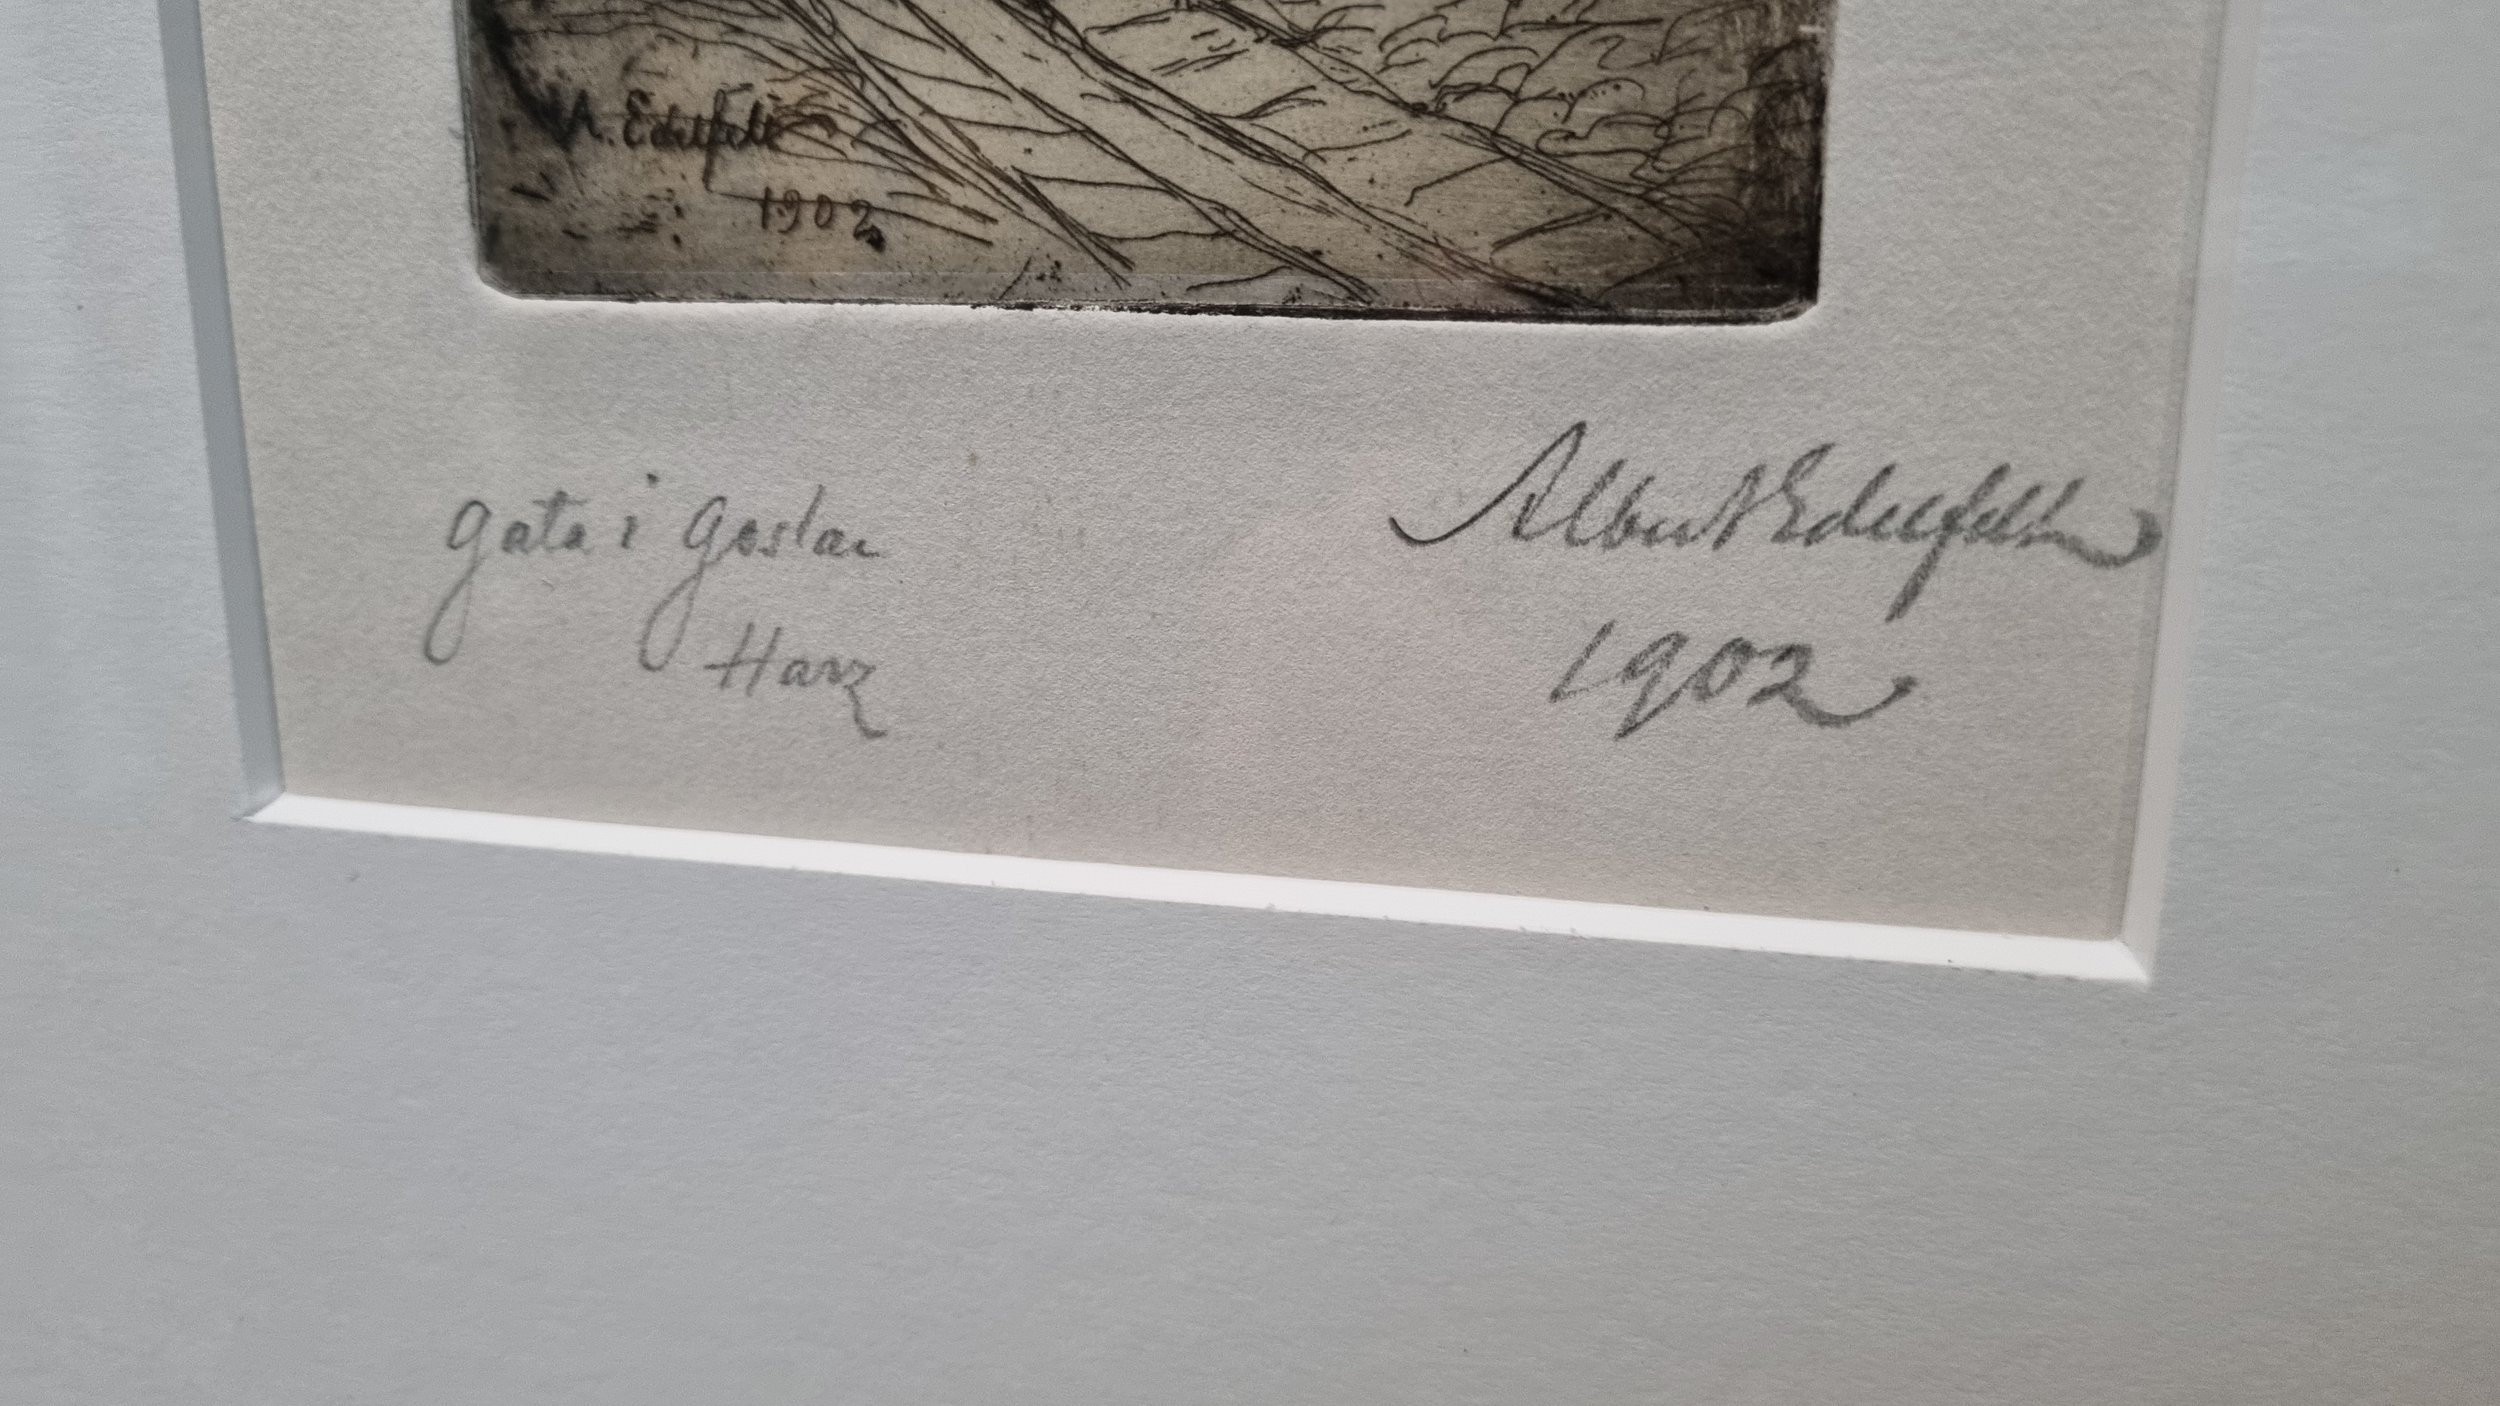 A. Edelfelt
1902
Gata i Goslar
Harz
Albert Edelfelt
1902